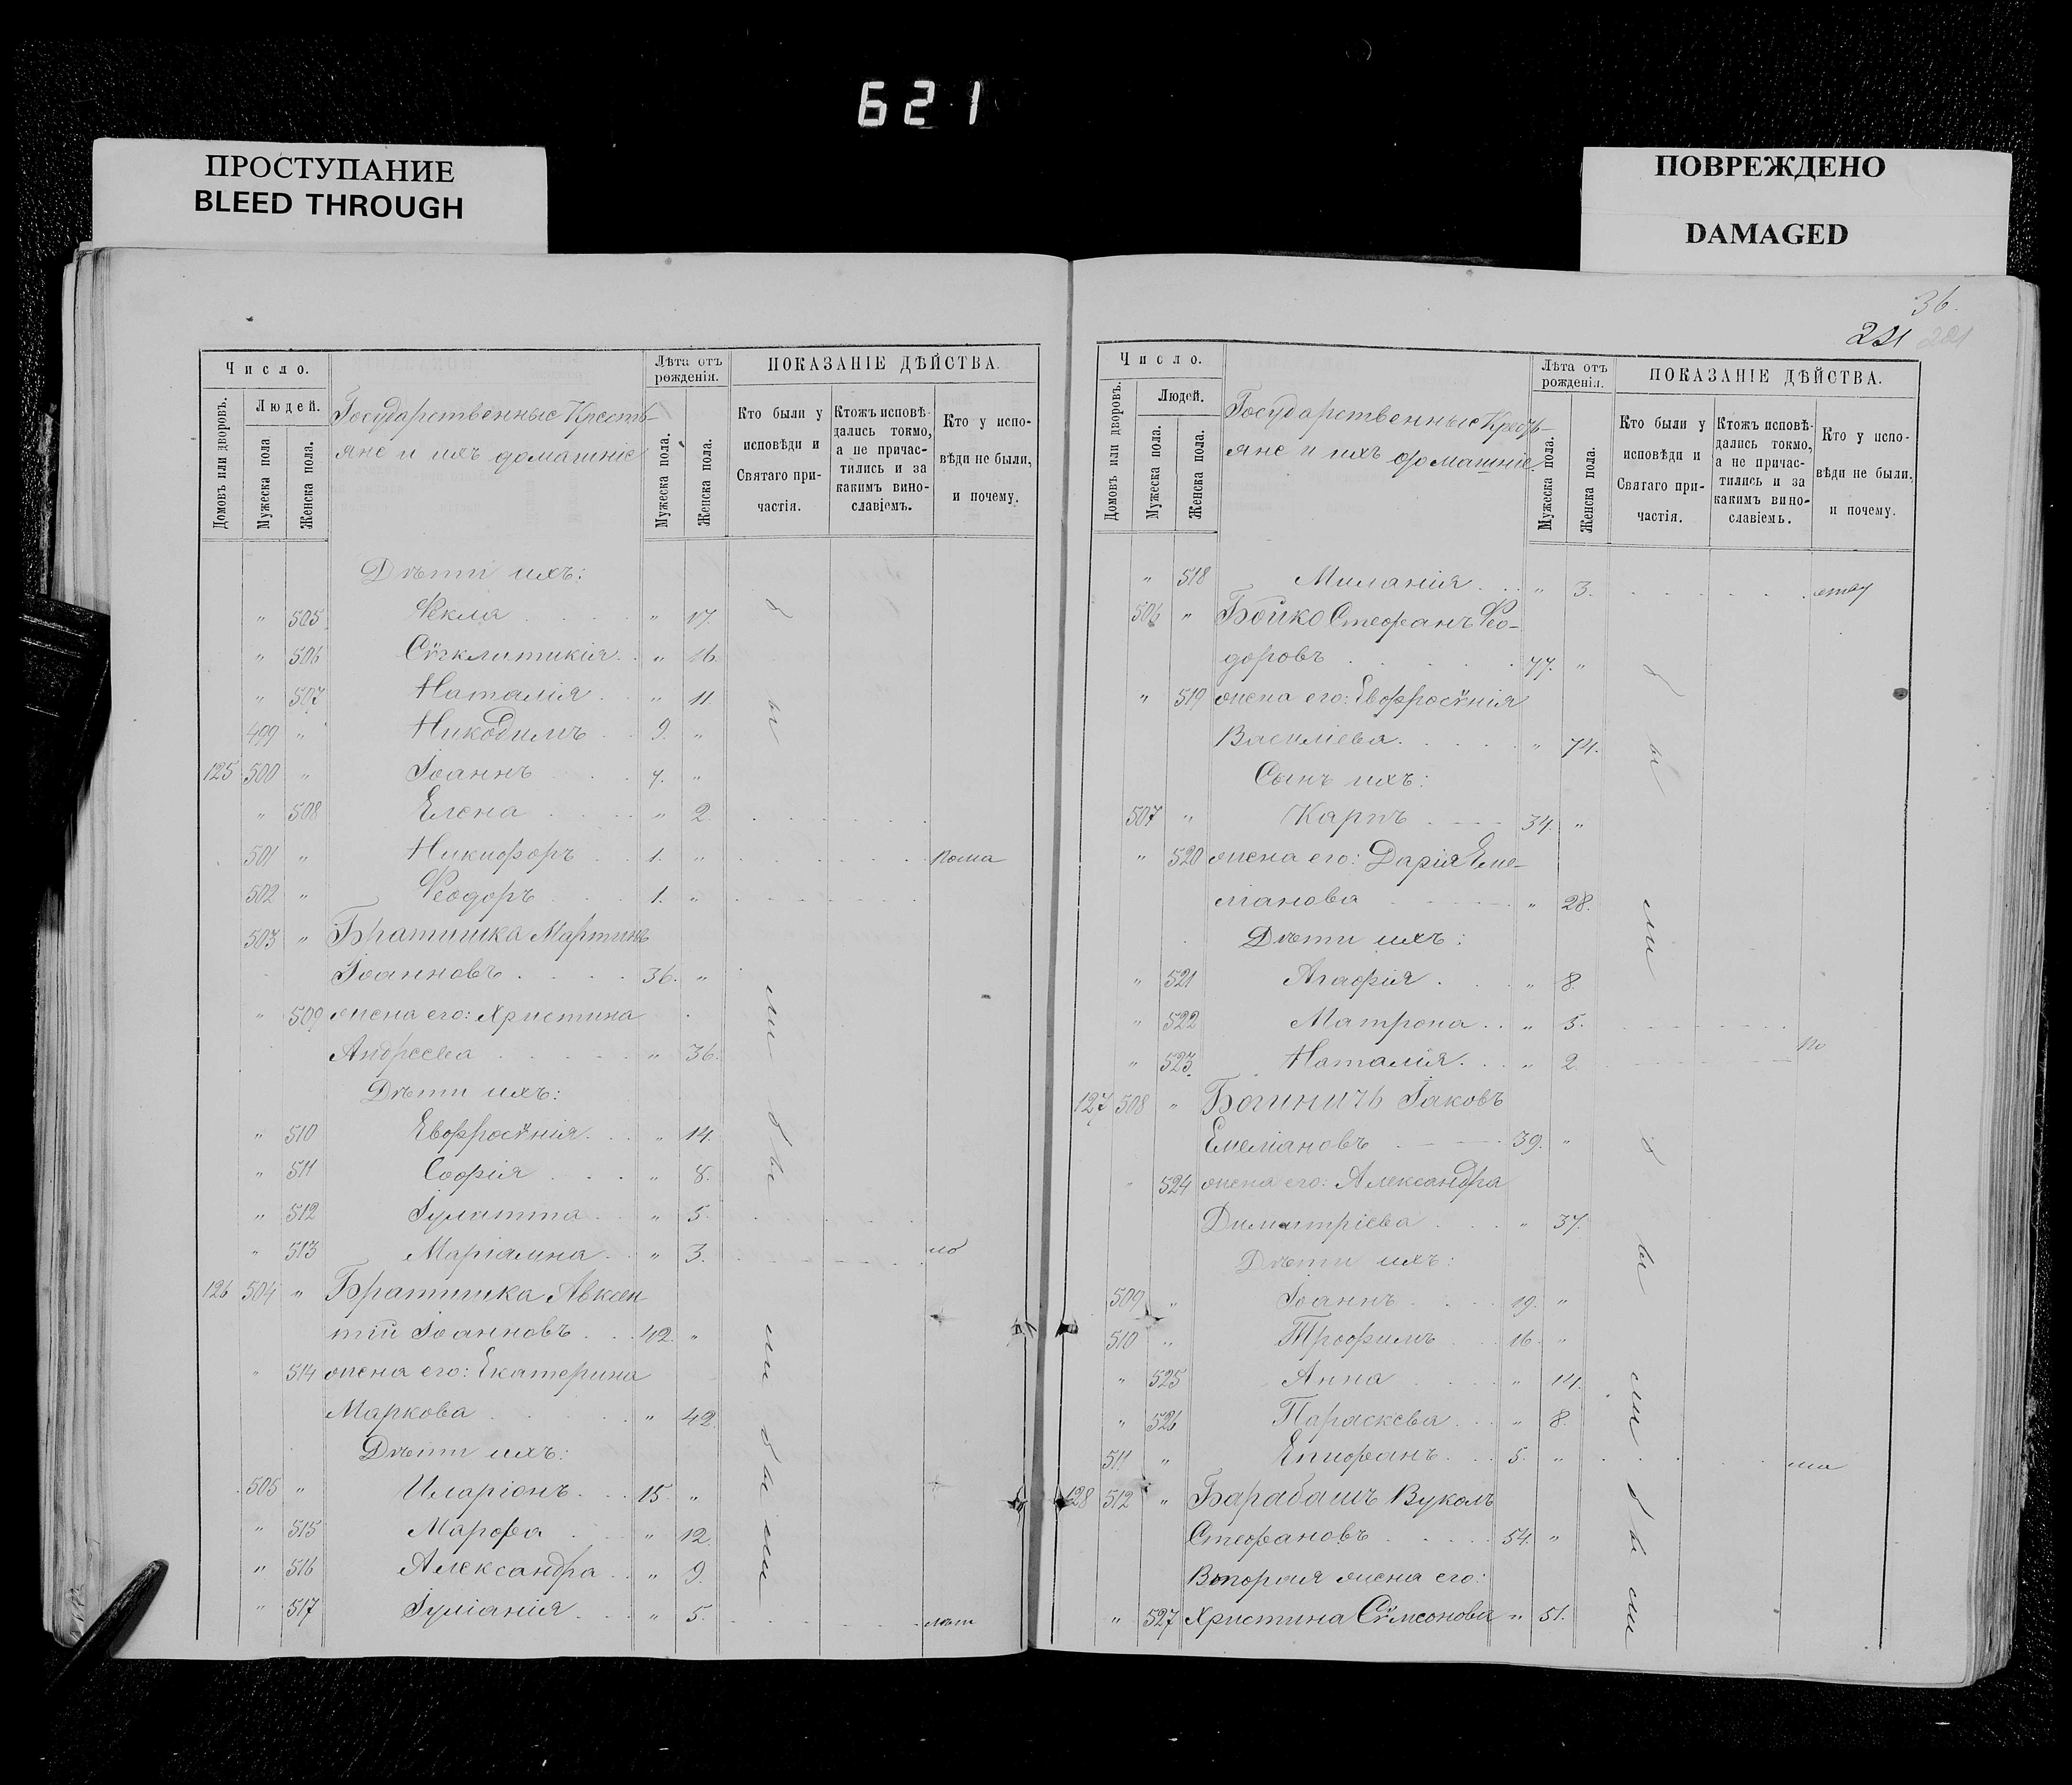 621
ПРОСТУПАНИЕ
BLEED THROUGH
ПОВРЕЖДЕНО
DAMAGED
Число.
Лѣта отъ рожденія.
ПОКАЗАНІЕ ДѢЙСТВА.
Домовъ или дворовъ.
Людей.
Мужеска пола
Женска пола.
Государственные Кресть-
яне и ихъ домашніе
Мужеска пола.
Женска пола.
Кто были у исповѣди и Святаго при- частія.
Ктожъ исповѣ- дались токмо, а не причас- тились и за какимъ вино- славіемъ.
Кто у испо- вѣди не были, и почему.
Дѣти ихъ:
" 505 Ѳекла " 17.
" 506 Сѵгклитикія " 16.
" 507 Наталія " 11
499 " Никодимъ 9. "
125 500 " Іоаннъ 7. "
" 508 Елена " 2
501 " Никифоръ 1. "
502 " Ѳеодоръ 1. "
503 " Братишка Мартинъ
Іоанновъ 36. "
" 509 жена его: Христина
Андреева " 36.
Дѣти ихъ:
" 510 Евфросѵнія " 14.
" 511 Софія " 8.
" 512 Іулитта " 5.
" 513 Маріамна " 3.
126 504 " Братишка Авксен
тій Іоанновъ 42. "
" 514 жена его: Екатерина
Маркова " 42
Дѣти ихъ:
505 " Иларіонъ 15. "
" 515 Марѳа " 12.
" 516 Александра " 9.
" 517 Іуліанія " 5.
были были были
36.
221 221
Число.
Лѣта отъ рожденія.
ПОКАЗАНІЕ ДѢЙСТВА.
Домовъ или дворовъ.
Людей.
Мужеска пола.
Женска пола.
Государственные Кресть-
яне и ихъ домашніе.
Мужеска пола.
Женска пола.
Кто были у исповѣди и Святаго при- частія.
Ктожъ исповѣ- дались токмо, а не причас- тились и за какимъ вино- славіемъ.
Кто у испо- вѣди не были, и почему.
" 518 Миланія " 3.
506 " Бойко Стефанъ Ѳео-
доровъ 77. "
" 519 жена его: Евфросѵнія
Василіева " 74.
Сынъ ихъ:
507 " Карпъ 34. "
" 520 жена его: Дарія Еме-
ліанова " 28.
Дѣти ихъ:
" 521 Агафія " 8.
" 522 Матрона " 5.
" 523 Наталія " 2. по
127 508 " Богиничъ Іаковъ
Емеліановъ 39. "
" 524 жена его: Александра
Димитріева " 37.
Дѣти ихъ:
509 " Іоаннъ 19. "
510 " Трофимъ 16. "
" 525 Анна " 14.
" 526 Параскева " 8.
511 " Епифанъ 5. "
128 512 " Барабашъ Вуколъ
Стефановъ 54. "
Вторая жена его:
" 527 Христина Сѵмеонова " 51.
были были были